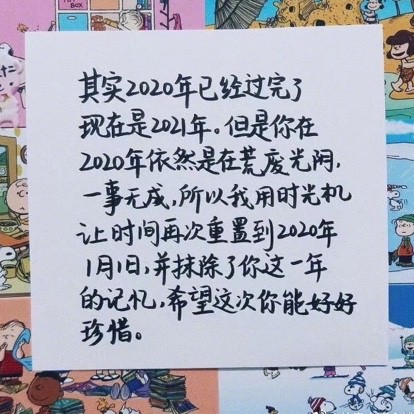 其实2020年已经过完了
现在是2021年。但是你在
2020年依然是在荒废光阴,
一事无成,所以我用时光机
让时间再次重置到2020年
1月1日,并抹除了你这一年
的记忆,希望这次你能好好
珍惜。